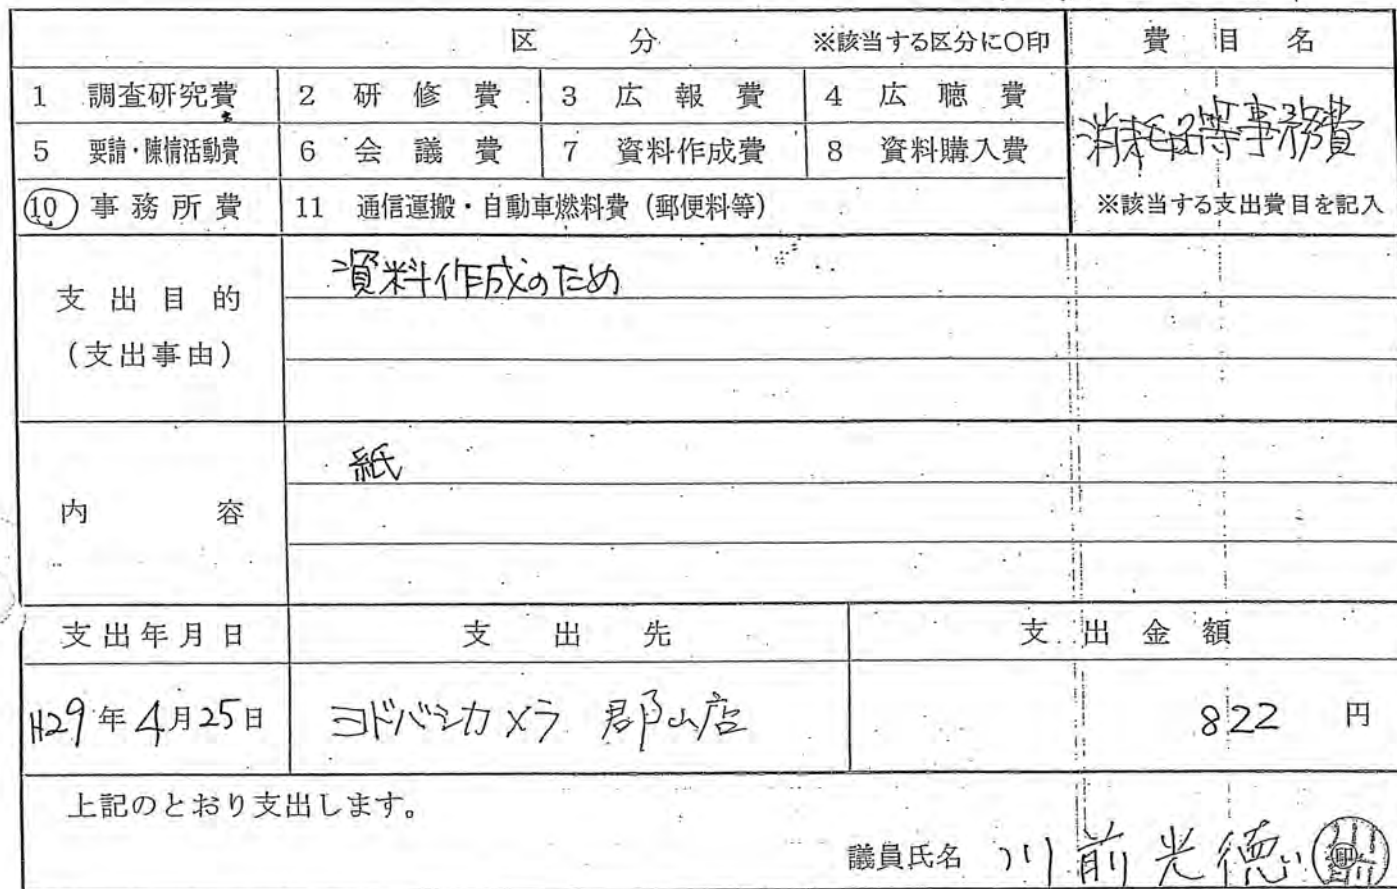 区 分 ※該当する区分に〇印 費目名
1 調査研究費 2 研修費 3 広報費 4 広聴費
消耗品等事務費
5 要請・陳情活動費 6 会議費 7 資料作成費 8 資料購入費
10 事務所費 11 通信運搬・自動車燃料費(郵便料等) ※該当する支出費目を記入
支出目的
(支出事由)
資料作成のため
内容
紙
支出年月日 支出先 支出金額
H29年4月25日 ヨドバシカメラ 郡山店 822円
上記のとおり支出します。
議員氏名 川前光徳